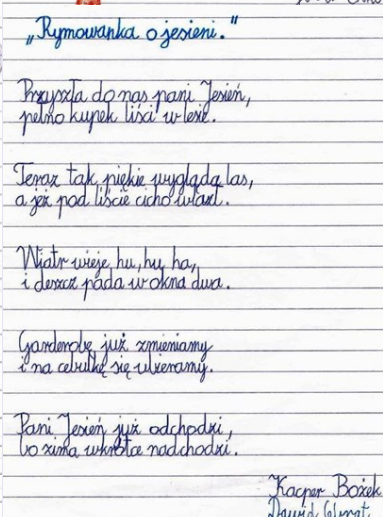 „Rymowanka o jesieni.“
Przyszła do nas pani Jesień,
pełno kupek liści w lesie.
Teraz tak pięknie wygląda las,
a jeż pod liście cicho wlazł.
Wiatr wieje hu, hu, ha,
i deszcz pada w okna dwa.
Garderobę już zmieniamy
i na cebulkę się ubieramy.
Pani Jesień już odchodzi,
bo zima wkrótce nadchodzi.
Kacper Bożek
Dawid